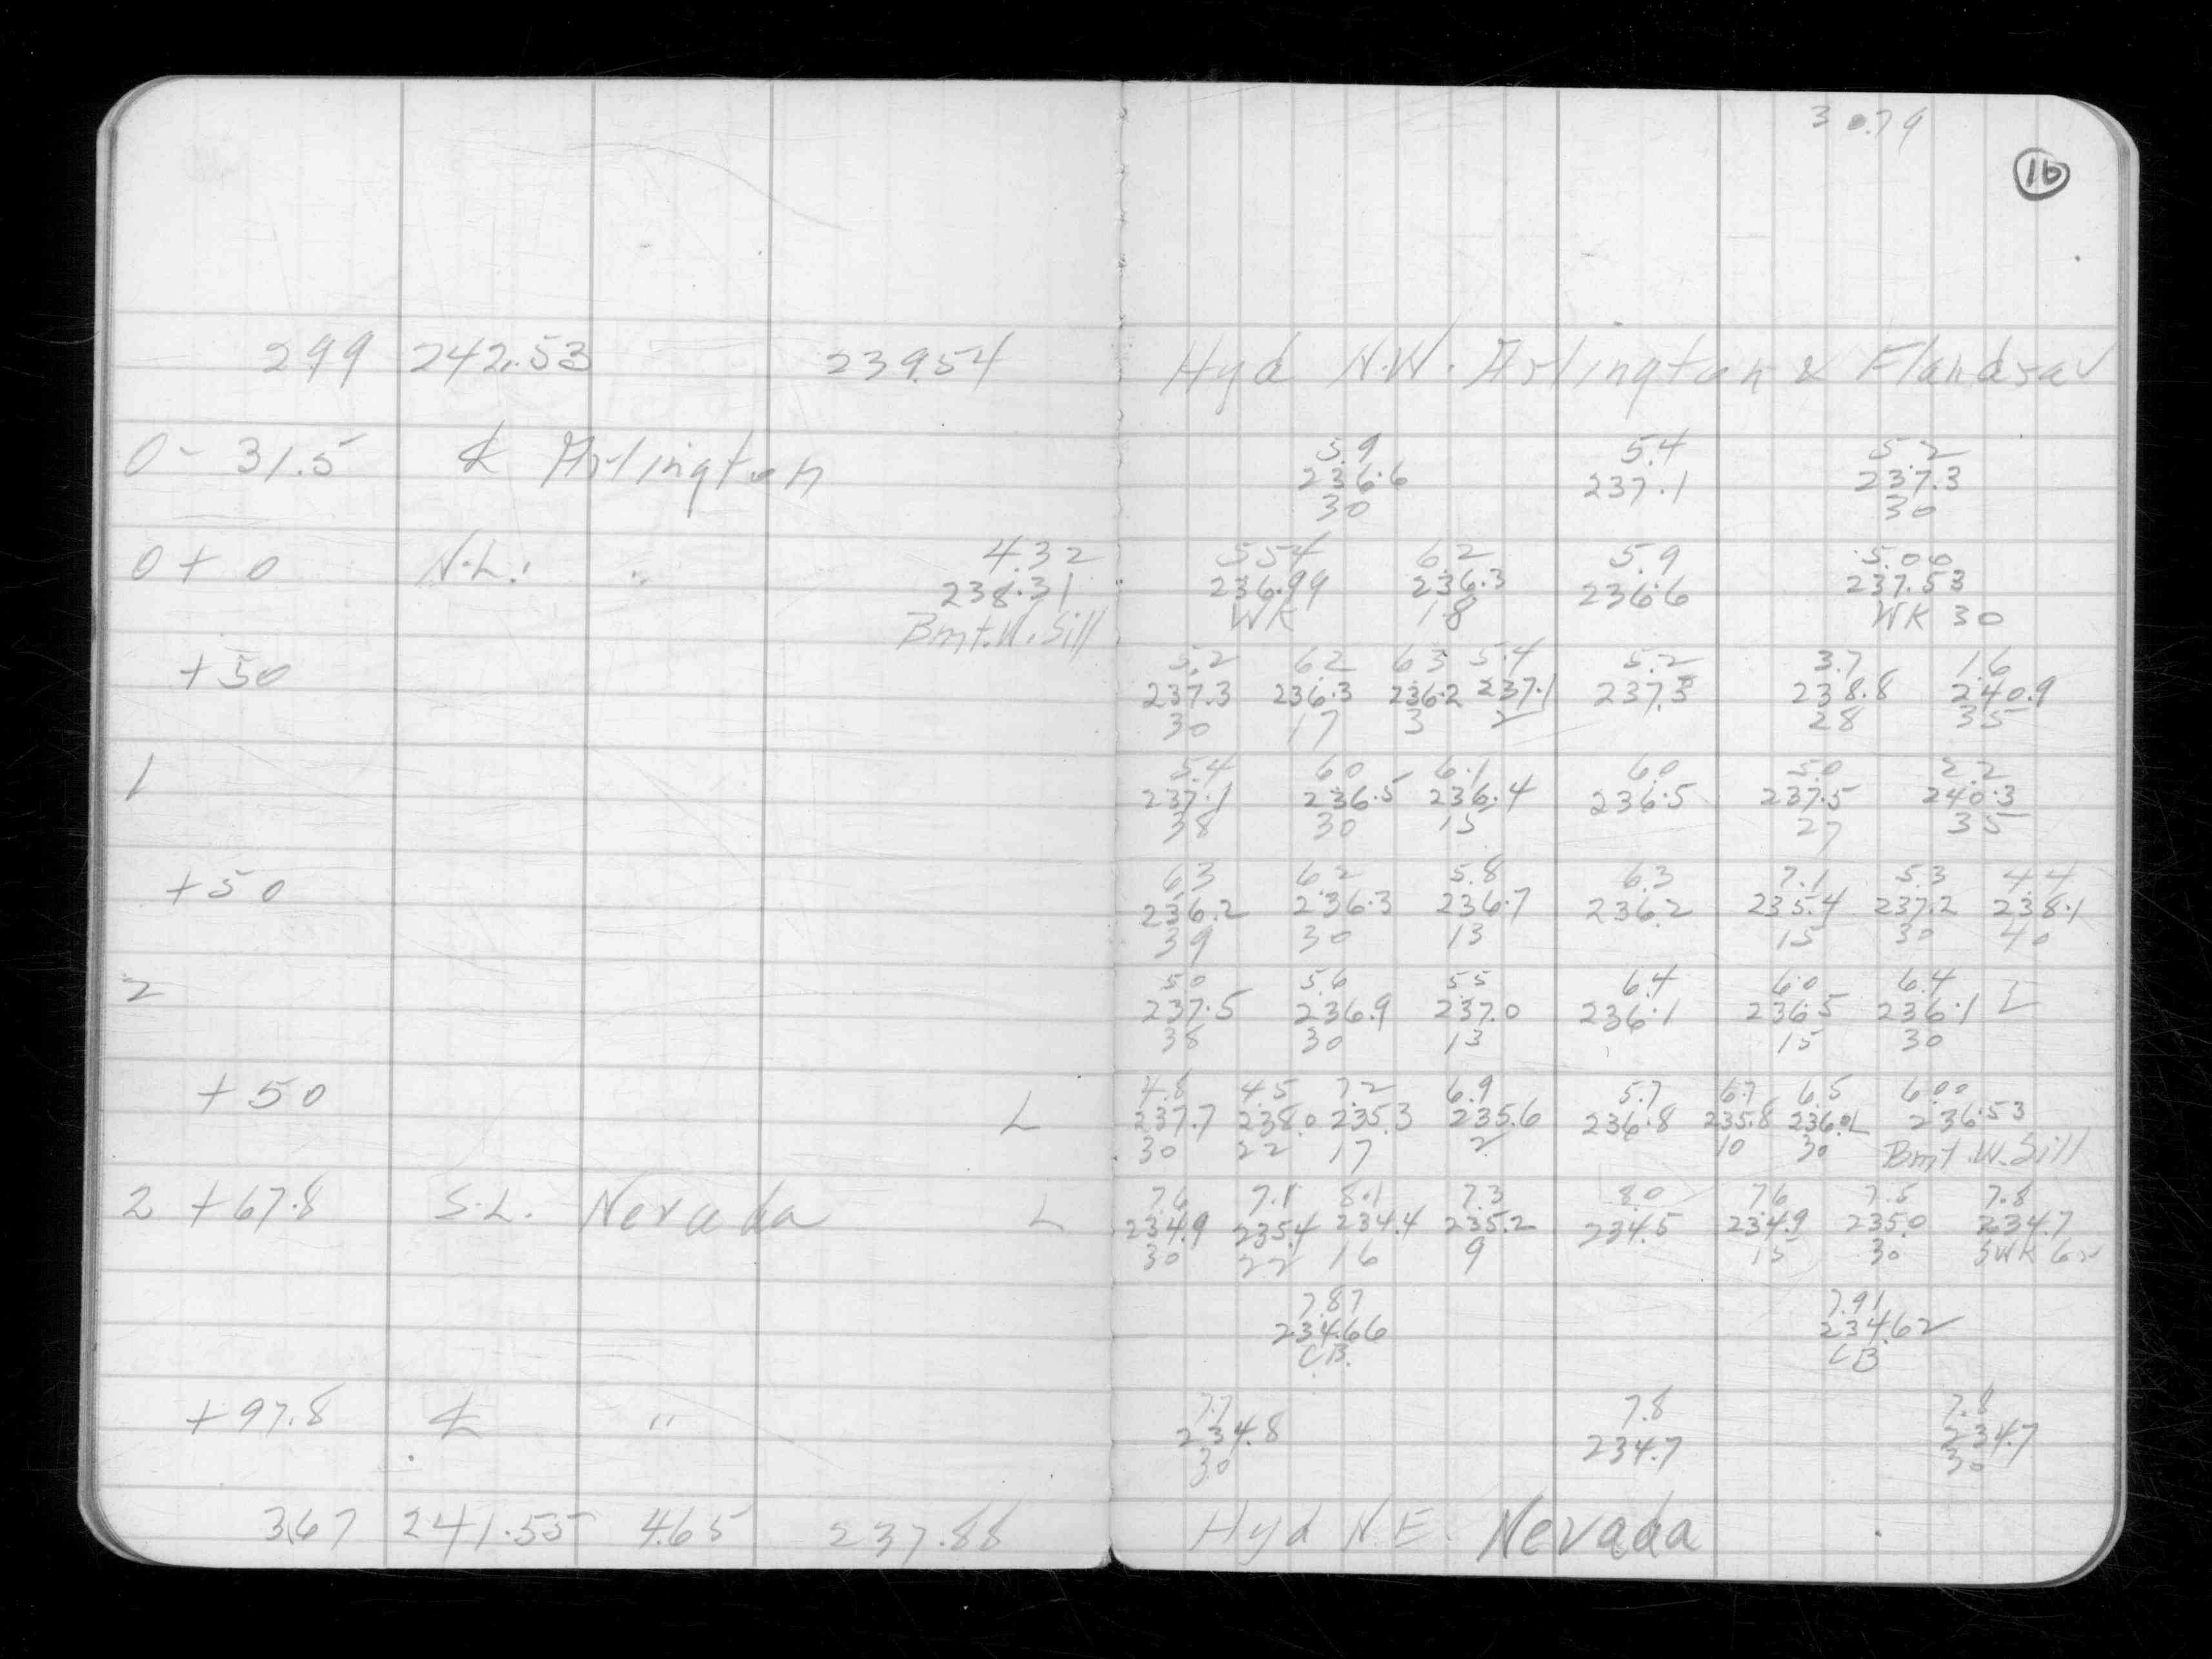 30.79
16
299 242.53 239.54 Hyd N.W. Arlington & Flandrau
0 - 31.5 ℄ Arlington 5.9 5.4 5.2
236.6 237.1 237.3
30 30
0 + 0 N.L. " 4.32 554 6.2 5.9 5.00
238.31 236.99 236.3 236.6 237.53
Bmt. W. Sill WK 18 WK 30
+50 5.2 62 63 5.4 5.2 3.7 1.6
237.3 236.3 236.2 237.1 237.3 238.8 240.9
30 17 3 2 28 35
1 5.4 60 6.1 6.0 5.0 2.2
237.1 236.5 236.4 236.5 237.5 240.3
38 30 15 27 35
+50 63 62 5.8 6.3 7.1 5.3 4.4
236.2 236.3 236.7 236.2 235.4 237.2 238.1
39 30 13 15 30 40
2 50 5.6 55 6.4 60 6.4
237.5 236.9 237.0 236.1 236.5 236.1 L
38 30 13 15 30
+50 4.8 4.5 7.2 6.9 5.7 6.7 6.5 600
L 237.7 238.0 235.3 235.6 236.8 235.8 236.0L 236.53
30 22 17 2 10 30 Bmt. W. Sill
2 +67.8 S.L. Nevada L 7.6 7.1 8.1 7.3 8.0 7.6 7.5 7.8
234.9 235.4 234.4 235.2 234.5 234.9 235.0 234.7
30 22 16 9 15 30 SWK 62
7.87 7.91
234.66 234.62
CB. CB
+97.8 ℄ " 7.7 7.8 7.8
234.8 234.7 234.7
30 30
367 241.55 465 237.88 Hyd N.E. Nevada